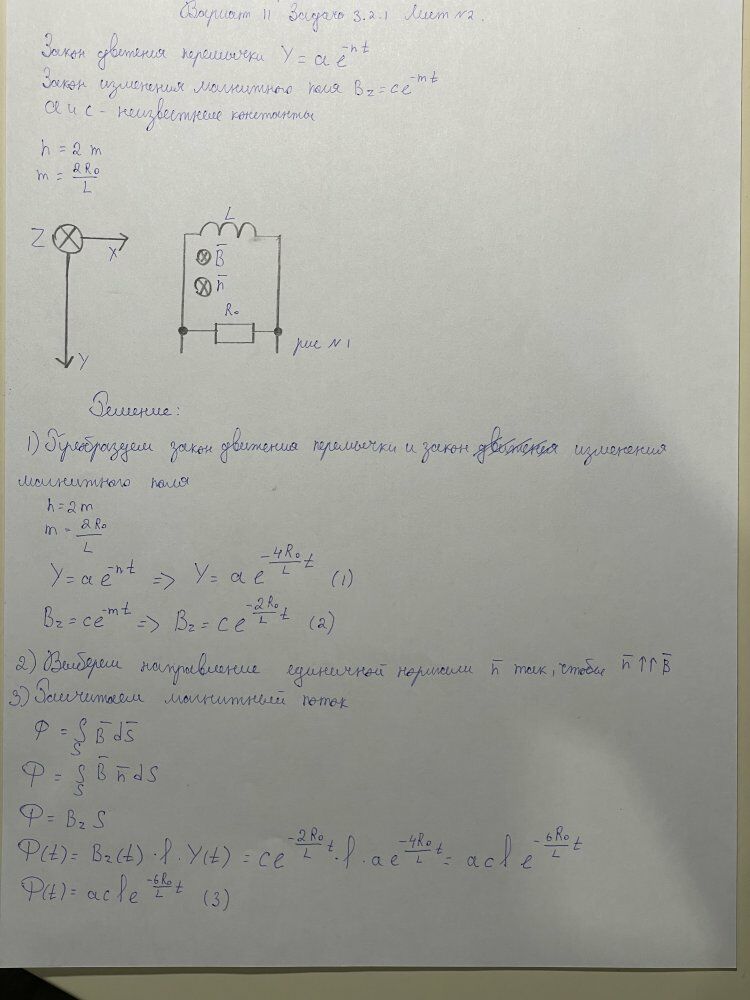 Вариант 11 Задача 3.2.1 Лист №2.
Закон движения перемычки Y = a e^{-nt}
Закон изменения магнитного поля B_z = ce^{-mt}
a и c - неизвестные константы
n = 2 m
m = \frac{2R_0}{L}
Z
X
Y
L
B̄
n̄
R_0
рис №1
Решение:
1) Преобразуем закон движения перемычки и закон изменения
магнитного поля
n = 2m
m = \frac{2R_0}{L}
Y = a e^{-nt} => Y = a e^{-\frac{4R_0}{L}t} (1)
B_z = ce^{-mt} => B_z = c e^{-\frac{2R_0}{L}t} (2)
2) Выберем направление единичной нормали n̄ так, чтобы n̄ ↑↑ B̄
3) Рассчитаем магнитный поток
Φ = ∫_S B̄ dS̄
Φ = ∫_S B̄ n̄ dS
Φ = B_z S
Φ(t) = B_z(t) · l · Y(t) = ce^{-\frac{2R_0}{L}t} · l · ae^{-\frac{4R_0}{L}t} = acl e^{-\frac{6R_0}{L}t}
Φ(t) = acl e^{-\frac{6R_0}{L}t} (3)